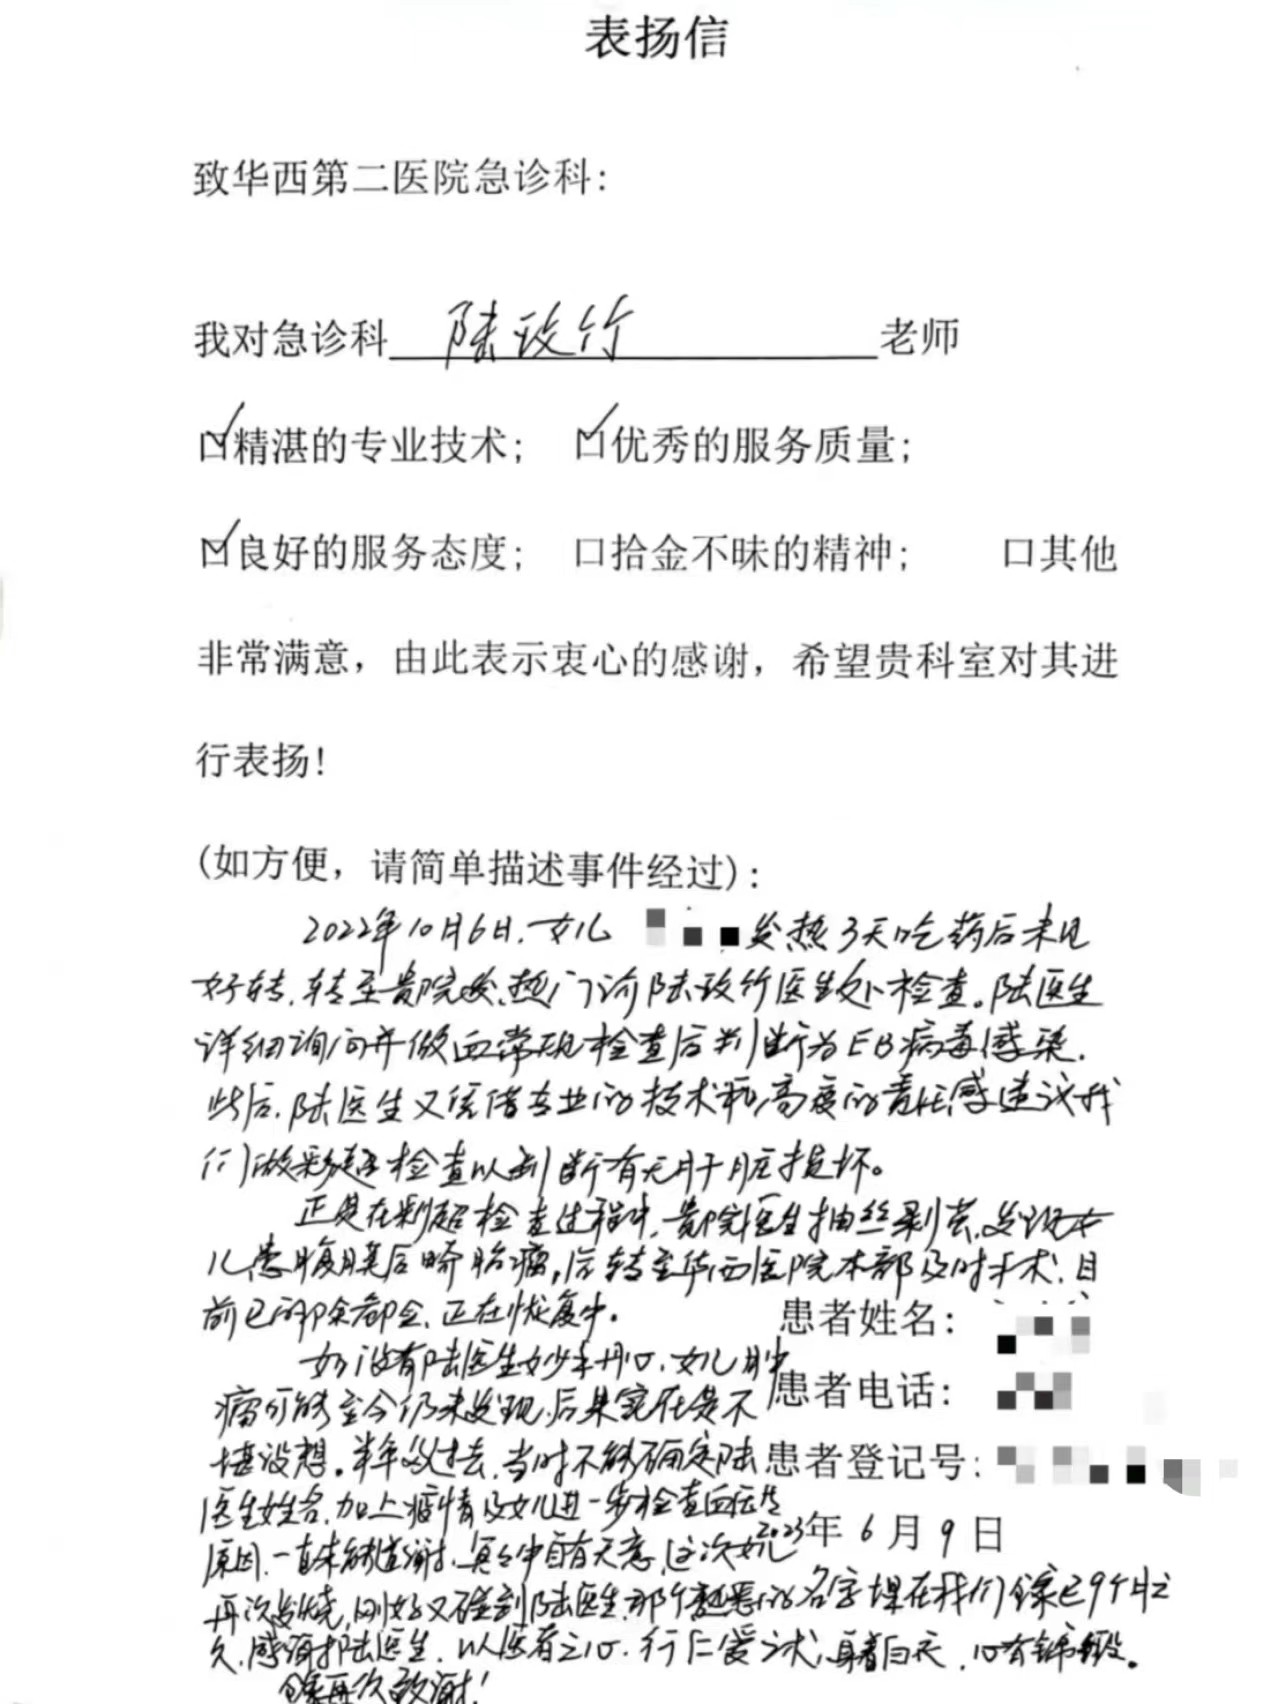 表扬信
致华西第二医院急诊科：
我对急诊科 陆政行 老师
☑精湛的专业技术； ☑优秀的服务质量；
☑良好的服务态度； □拾金不昧的精神； □其他
非常满意，由此表示衷心的感谢，希望贵科室对其进
行表扬！
(如方便，请简单描述事件经过)：
2022年10月6日，女儿 发热3天吃药后未见
好转，转至贵院发热门诊陆政行医生处检查。陆医生
详细询问并做血常规检查后判断为EB病毒感染，
此后，陆医生又凭借专业的技术和高度的责任感建议我
们做彩超检查以判断有无肝脏损坏。
正是在彩超检查过程中，贵院医生抽丝剥茧，发现女
儿患腹膜后畸胎瘤，后转至华西医院本部及时手术，目
前已 正在恢复中。
如没有陆医生妙手丹心，女儿肿
瘤可能至今仍未发现，后果实在是不
堪设想。半年多过去，当时不能确定陆
医生姓名，加上疫情及女儿进一步检查
原因，一直未能道谢，冥冥中自有天意，这次女儿
再次发烧，刚好又碰到陆医生，那个 的名字埋在我们 已9个月之
久，感谢 陆医生，以医者之心，行仁爱之术，身着白衣，心有锦缎。
再次致谢！
患者姓名：
患者电话：
患者登记号：
2023年 6 月 9 日